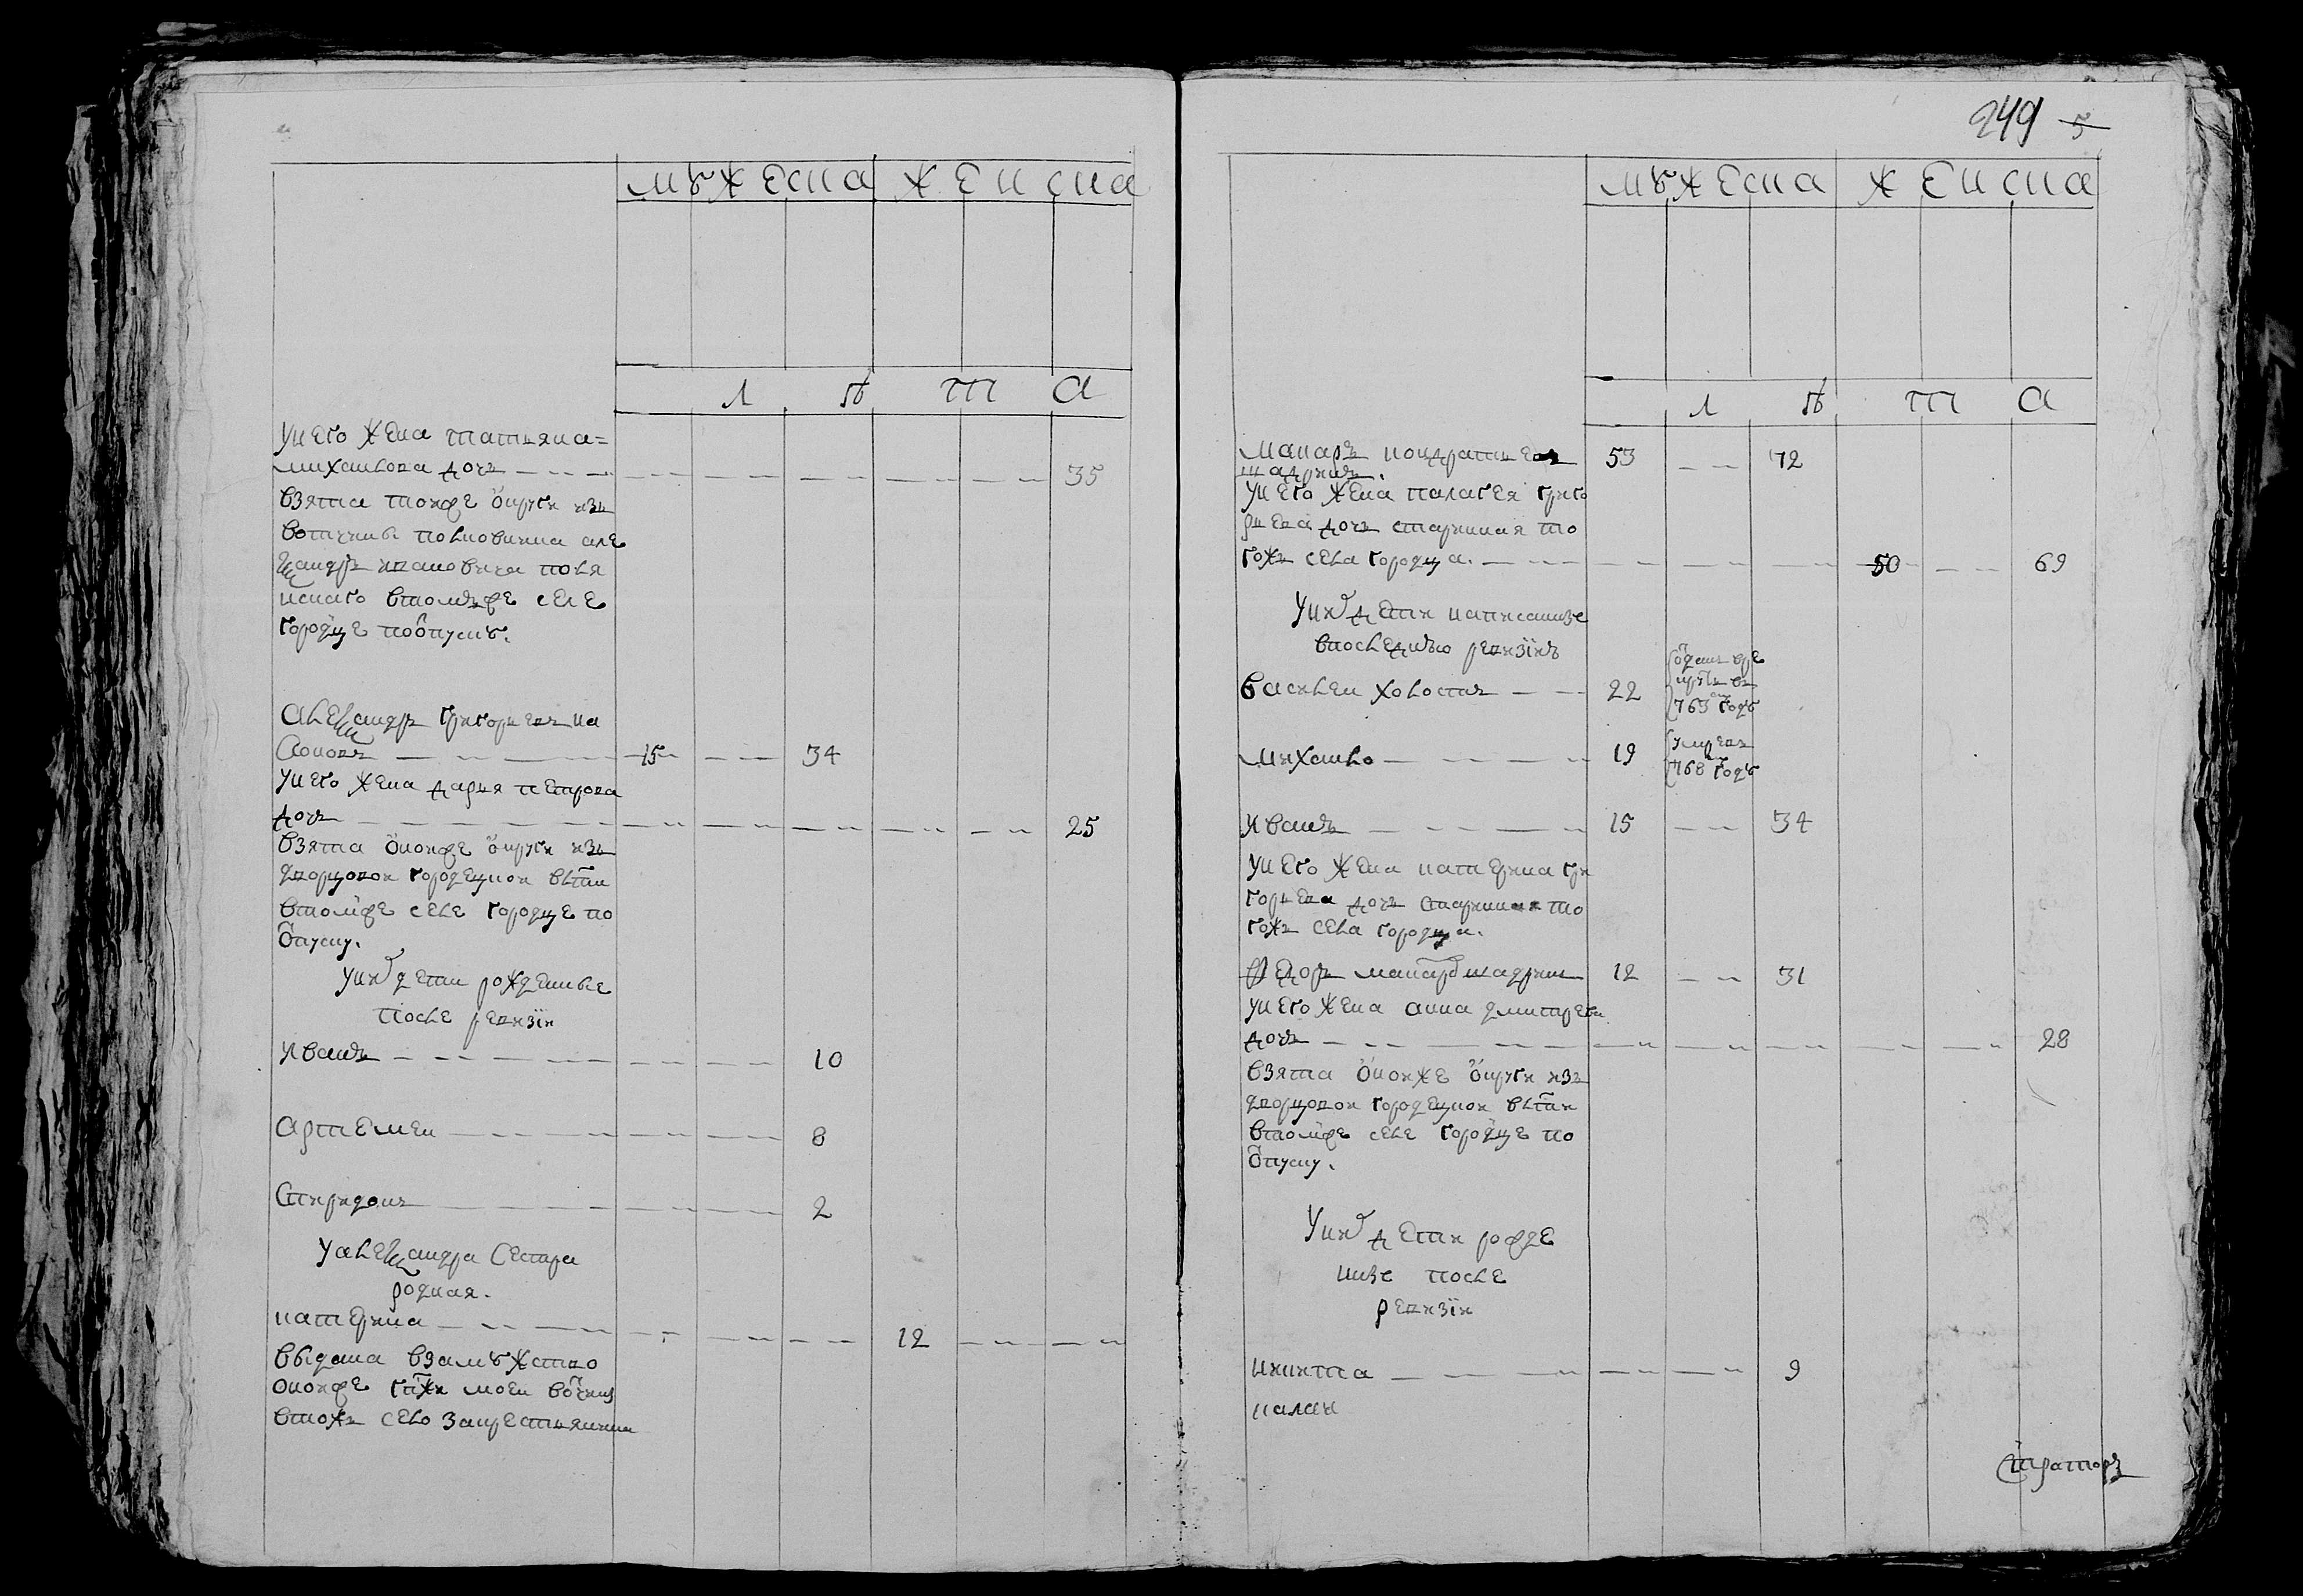 мужеска женска
лѣта
у него жена татьяна
михаилова дочь 35
взята тоиже округи изъ
вотчины полковника але
ѯандра ивановича поля
нскаго втомъже селе
городце поотпуску.
алеѯандръ григорьевъ
15 34
у него жена дарья петрова
дочь 25
взята оноиже округи изъ
дворцовои городецкои влсти
втомже селе городце по
отпуску.
у них дети рожденные
после ревизiи
иванъ 10
артемеи 8
спиридонъ 2
у алеѯандра сестра
родная.
катерина 12
выдана взамужство
оноиже гпжи моеи вотчины
втожъ село за крестьянина
249 5
мужеска женска
лѣта
макаръ кондратьевъ 53 72
шадринъ.
у него жена палагея григо
рьева дочь старинная то
гожъ села городца. 50 69
у них дети написанные
впоследнюю ревизiю
василеи холостъ 22 отданъ вре
круты въ
763 году
михаило 19 умре въ
768 году
иванъ 15 34
у него жена катерина гри
горьева дочь старинная то
гожъ села городца.
федоръ макаров шадрин 12 31
у него жена анна дмитрева
дочь 28
взята оноиже округи изъ
дворцовои городецкои влсти
втомже селе городце по
отпуску.
у них дети рожде
ные после
ревизiи
никита 9